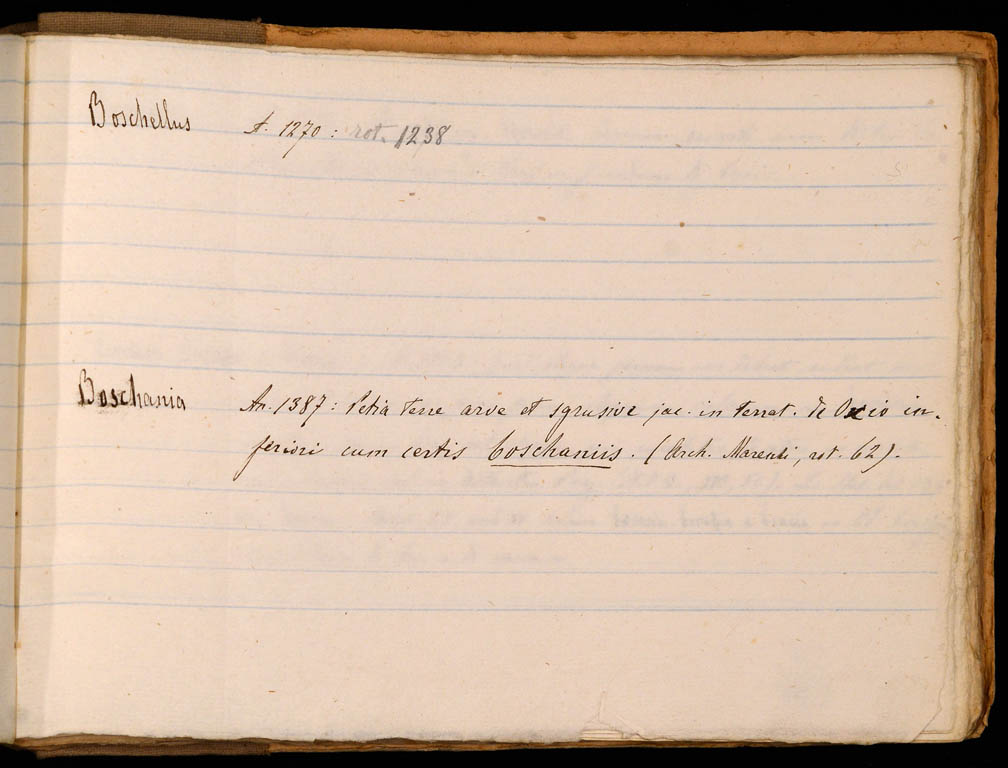 Boschellus A. 1270: rot. 1238
Boschania An. 1387: Petia terre arve et sgrusive jac. in territ. de Oxio in-
feriori cum certis boschaniis. (Arch. Marenzi, rot. 62).